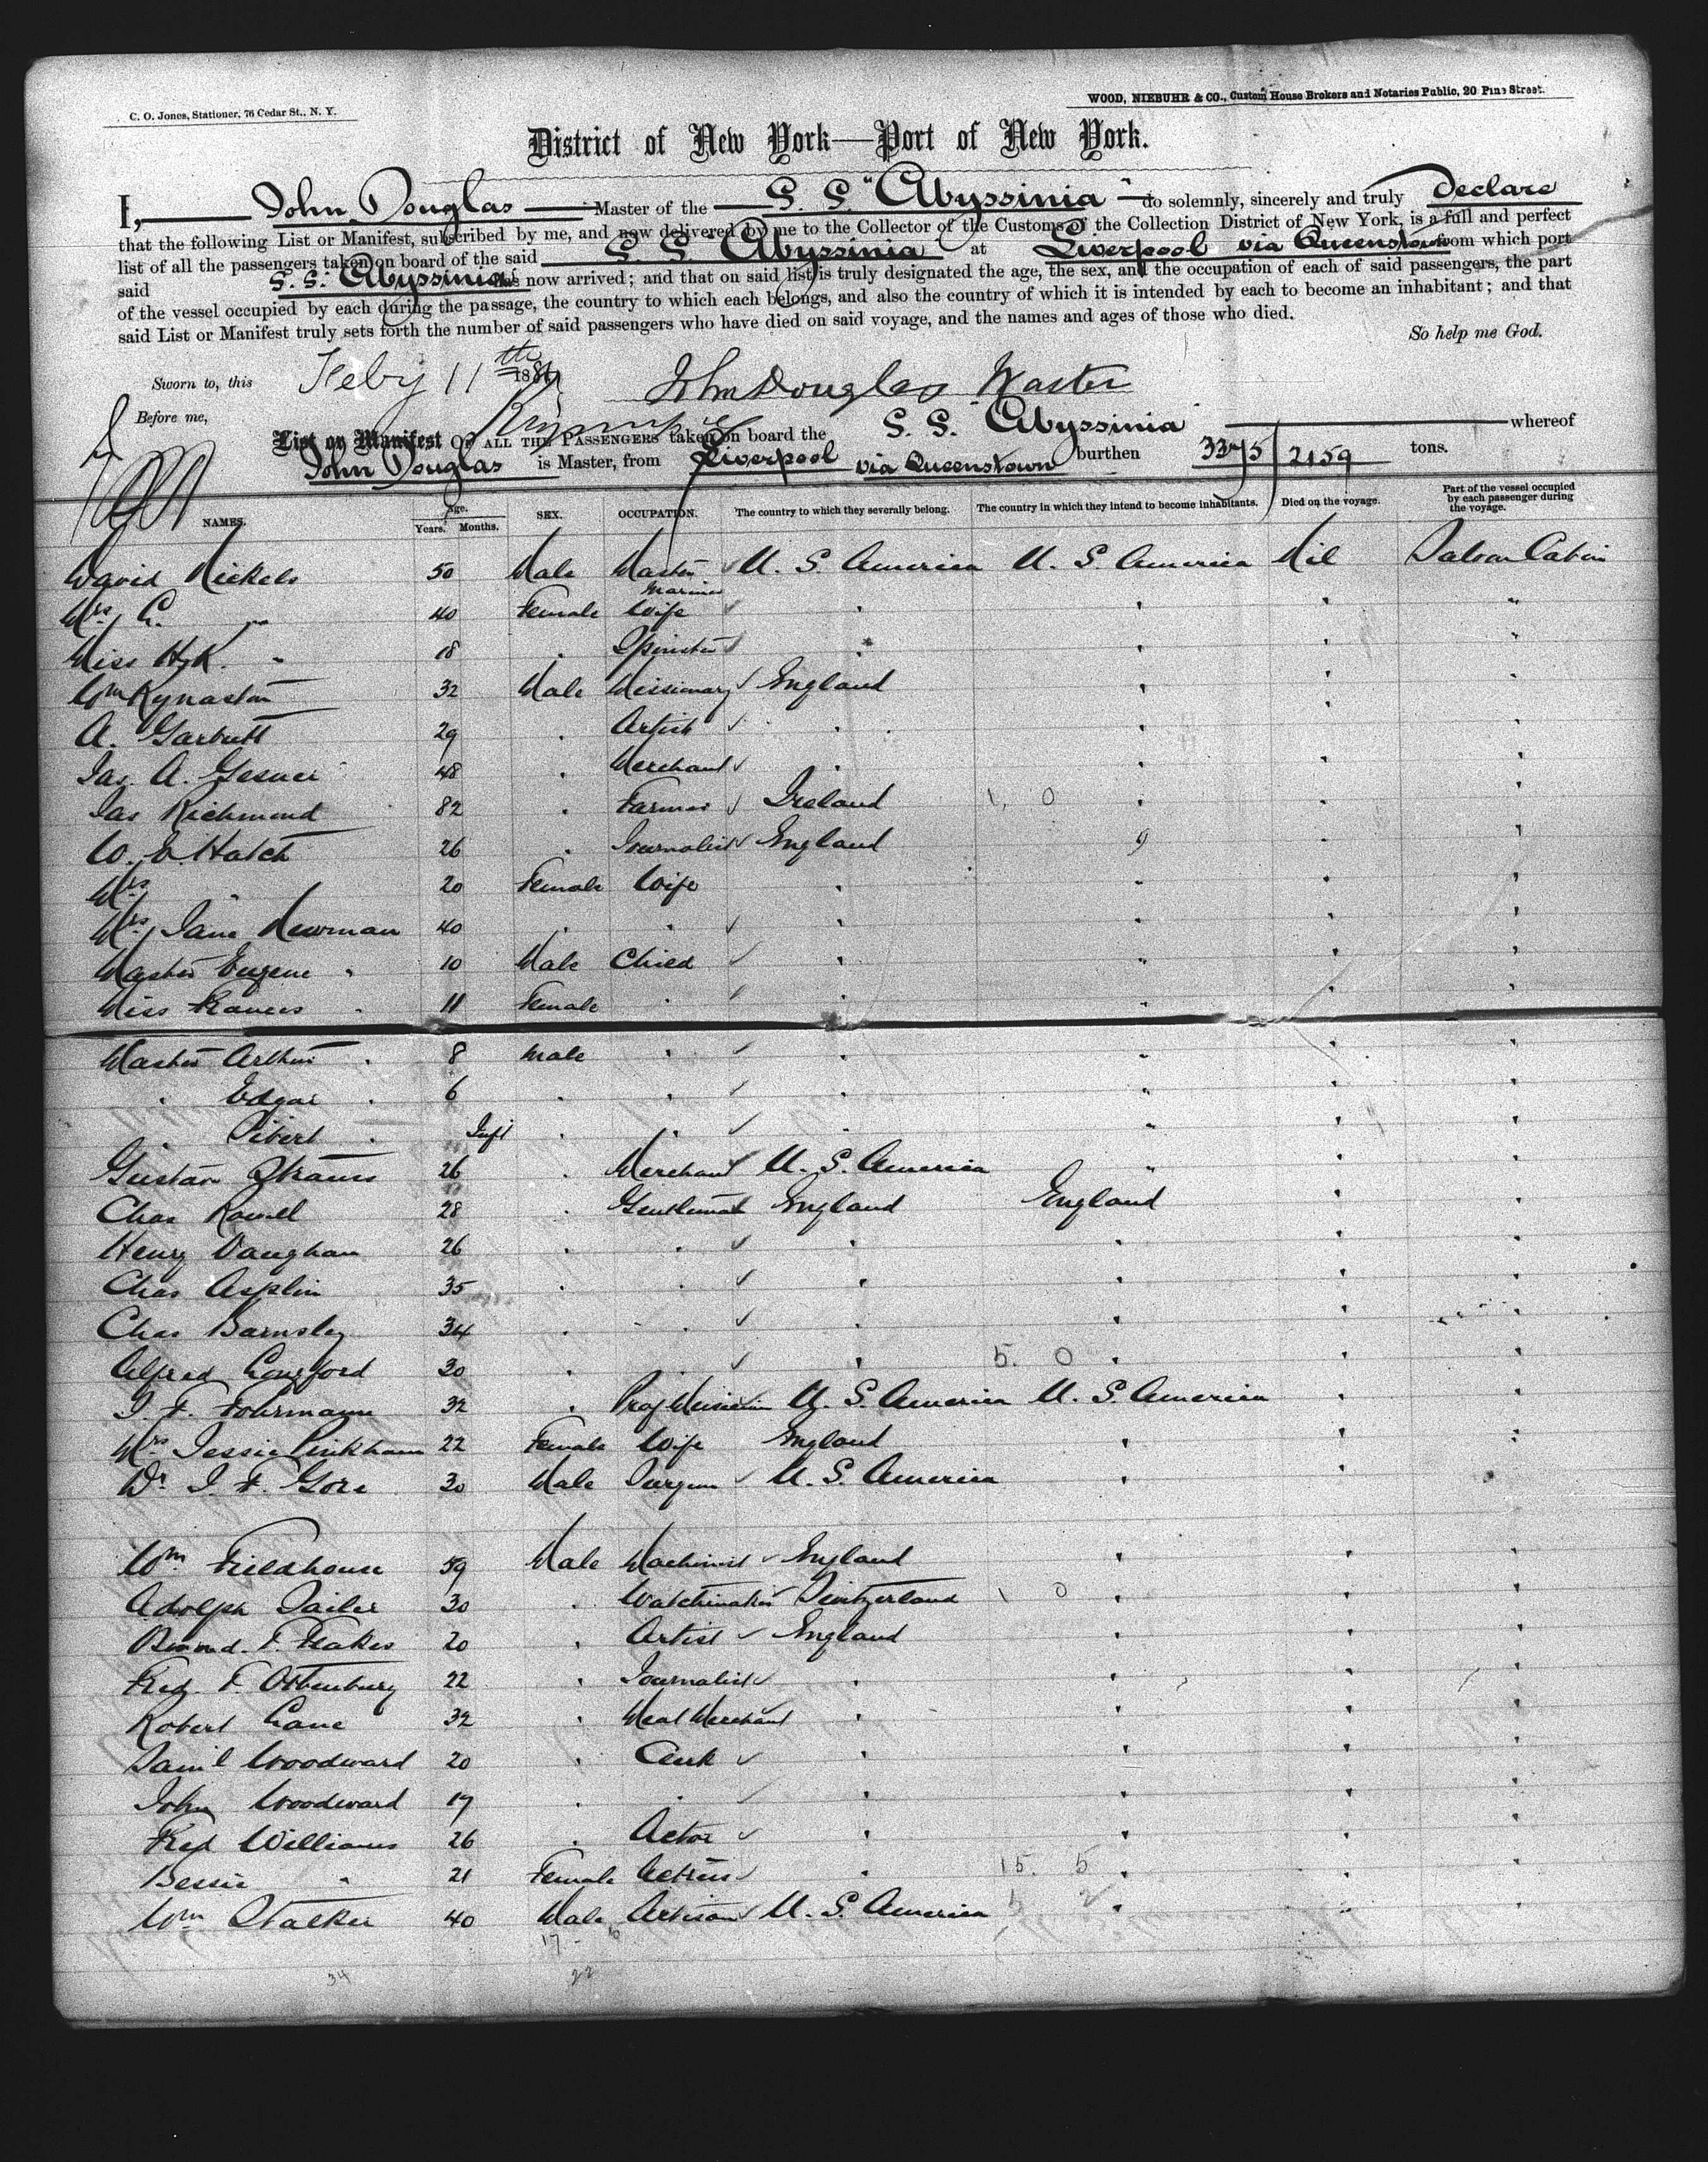 C. O. Jones, Stationer, 76 Cedar St., N. Y.
WOOD, NIEBUHR & CO., Custom House Brokers and Notaries Public, 20 Pine Street.
District of New York—Port of New York.
I, John Douglas Master of the S. S. "Abyssinia" do solemnly, sincerely and truly Declare
that the following List or Manifest, subscribed by me, and now delivered by me to the Collector of the Customs of the Collection District of New York, is a full and perfect
list of all the passengers taken on board of the said S. S. Abyssinia at Liverpool via Queenstown from which port
said S. S. Abyssinia has now arrived; and that on said list is truly designated the age, the sex, and the occupation of each of said passengers, the part
of the vessel occupied by each during the passage, the country to which each belongs, and also the country of which it is intended by each to become an inhabitant; and that
said List or Manifest truly sets forth the number of said passengers who have died on said voyage, and the names and ages of those who died.
So help me God.
Sworn to, this Feby 11th 188
John Douglas Master
Before me,
List or Manifest OF ALL THE PASSENGERS taken on board the S. S. Abyssinia whereof
John Douglas is Master, from Liverpool via Queenstown burthen 3375/2159 tons.
NAMES. Age. Years. Months. SEX. OCCUPATION. The country to which they severally belong. The country in which they intend to become inhabitants. Died on the voyage. Part of the vessel occupied by each passenger during the voyage.
David Nickels 50 Male Master Mariner U. S. America U. S. America Nil Saloon Cabin
Mrs C. " 40 Female Wife " " " "
Miss H. K. " 18 " Spinster " " " "
Wm Kynaston 32 Male Missionary England " " "
A. Garbutt 29 " Artist " " " "
Jas. A. Gesner 48 " Merchant " " " "
Jas Richmond 82 " Farmer Ireland 1. 0 " " "
W. E. Hatch 26 " Journalist England " " "
Mrs " 20 Female Wife " " " "
Mrs Jane Newman 40 " " " " " "
Master Eugene " 10 Male Child " " " "
Miss Frances " 11 Female " " " " "
Master Arthur " 8 Male " " " " "
" Edgar " 6 " " " " " "
" " Inft " " " " " "
Gustav Strauss 26 " Merchant U. S. America " " "
Chas Rowell 28 " Gentleman England England " "
Henry Vaughan 26 " " " " " "
Chas Asplin 35 " " " " " "
Chas Barnsley 34 " " " " " "
Alfred Longford 30 " " 5. 0 " " "
J. F. Fohrmann 32 " Prof Musician U. S. America U. S. America " "
Mrs Jessie Pinkham 22 Female Wife England " " "
Dr J. F. Gore 30 Male Surgeon U. S. America " " "
Wm Fieldhouse 59 Male Machinist England " " "
Adolph Sailer 30 " Watchmaker Switzerland 1 0 " " "
F. Flakes 20 " Artist England " " "
Fred. F. Ottenburg 22 " Journalist " " " "
Robert Lane 32 " Meat Merchant " " " "
Saml Woodward 20 " Clerk " " " "
John Woodward 19 " " " " " "
Fred Williams 26 " Actor " " " "
Bessie " 21 Female Actress " 15. 5 " " "
Wm Stalker 40 Male Artisan U. S. America 5 2 " " "
17 - 5
34 22